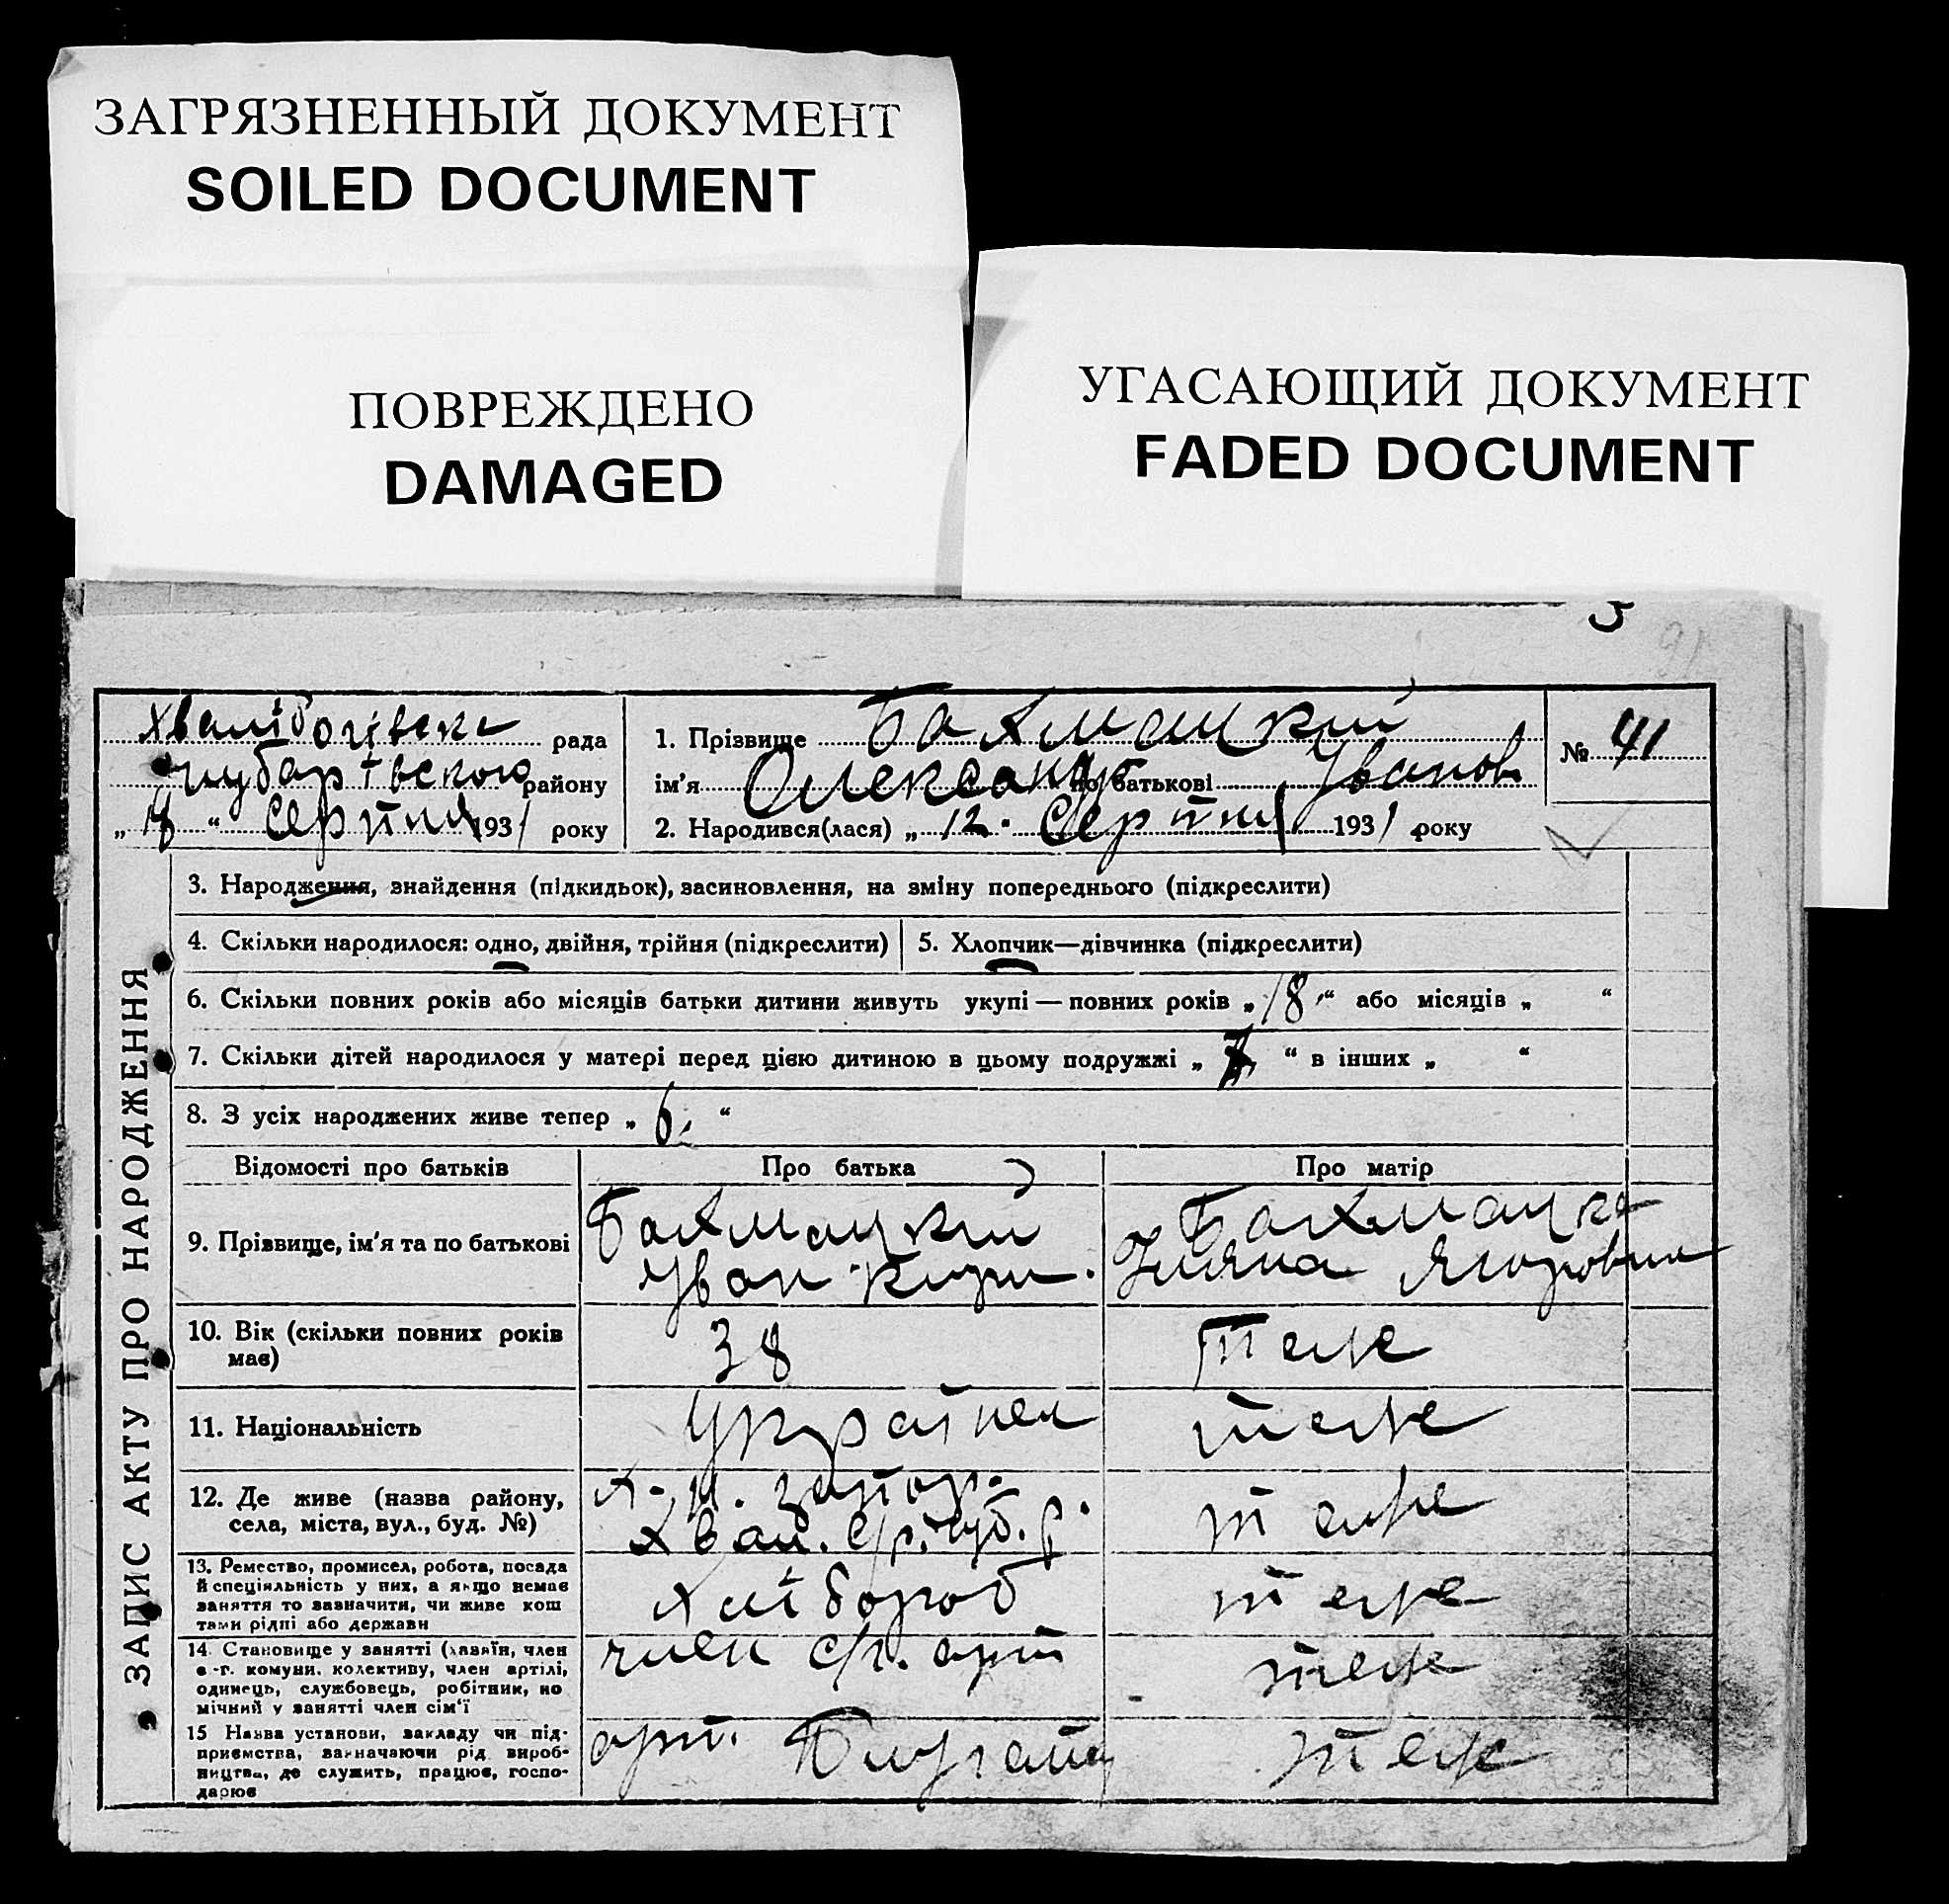 ЗАГРЯЗНЕННЫЙ ДОКУМЕНТ
SOILED DOCUMENT
ПОВРЕЖДЕНО
DAMAGED
УГАСАЮЩИЙ ДОКУМЕНТ
FADED DOCUMENT
ЗАПИС АКТУ ПРО НАРОДЖЕННЯ
Хвалібогівськ рада
Чубарівського району
„18“ Серпня 1931 року
1. Прізвище Бахмацкий
ім'я Олександр по батькові Іванов
2. Народився(лася) „12“ Серпня 1931 року
№ 41
3. Народження, знайдення (підкидьок), засиновлення, на зміну попереднього (підкреслити)
4. Скільки народилося: одно, двійня, трійня (підкреслити)
5. Хлопчик—дівчинка (підкреслити)
6. Скільки повних років або місяців батьки дитини живуть укупі — повних років „18“ або місяців „ “
7. Скільки дітей народилося у матері перед цією дитиною в цьому подружжі „ “ в інших „ “
8. З усіх народжених живе тепер „6“
Відомості про батьків Про батька Про матір
9. Прізвище, ім'я та по батькові
Бахмацкий
Іван
Бахмацка
Уляна Ягоровна
10. Вік (скільки повних років
має)
38 теж
11. Національність
Україней теж
12. Де живе (назва району,
села, міста, вул., буд. №)
Хвал. с/р. Чуб. р.
теж
13. Ремество, промисел, робота, посада
й спеціяльність у них, а якщо немає
заняття то зазначити, чи живе кош
тами рідні або держави
хлібороб теж
14. Становище у занятті (хазяїн, член
с.-г. комуни, колективу, член артілі,
одинець, службовець, робітник, по
мічний у занятті член сім'ї
член с/г. арт теж
15 Назва установи, закладу чи під-
приємства, зазначаючи рід вироб-
ництва, де служить, працює, госпо-
дарює
арт. теж